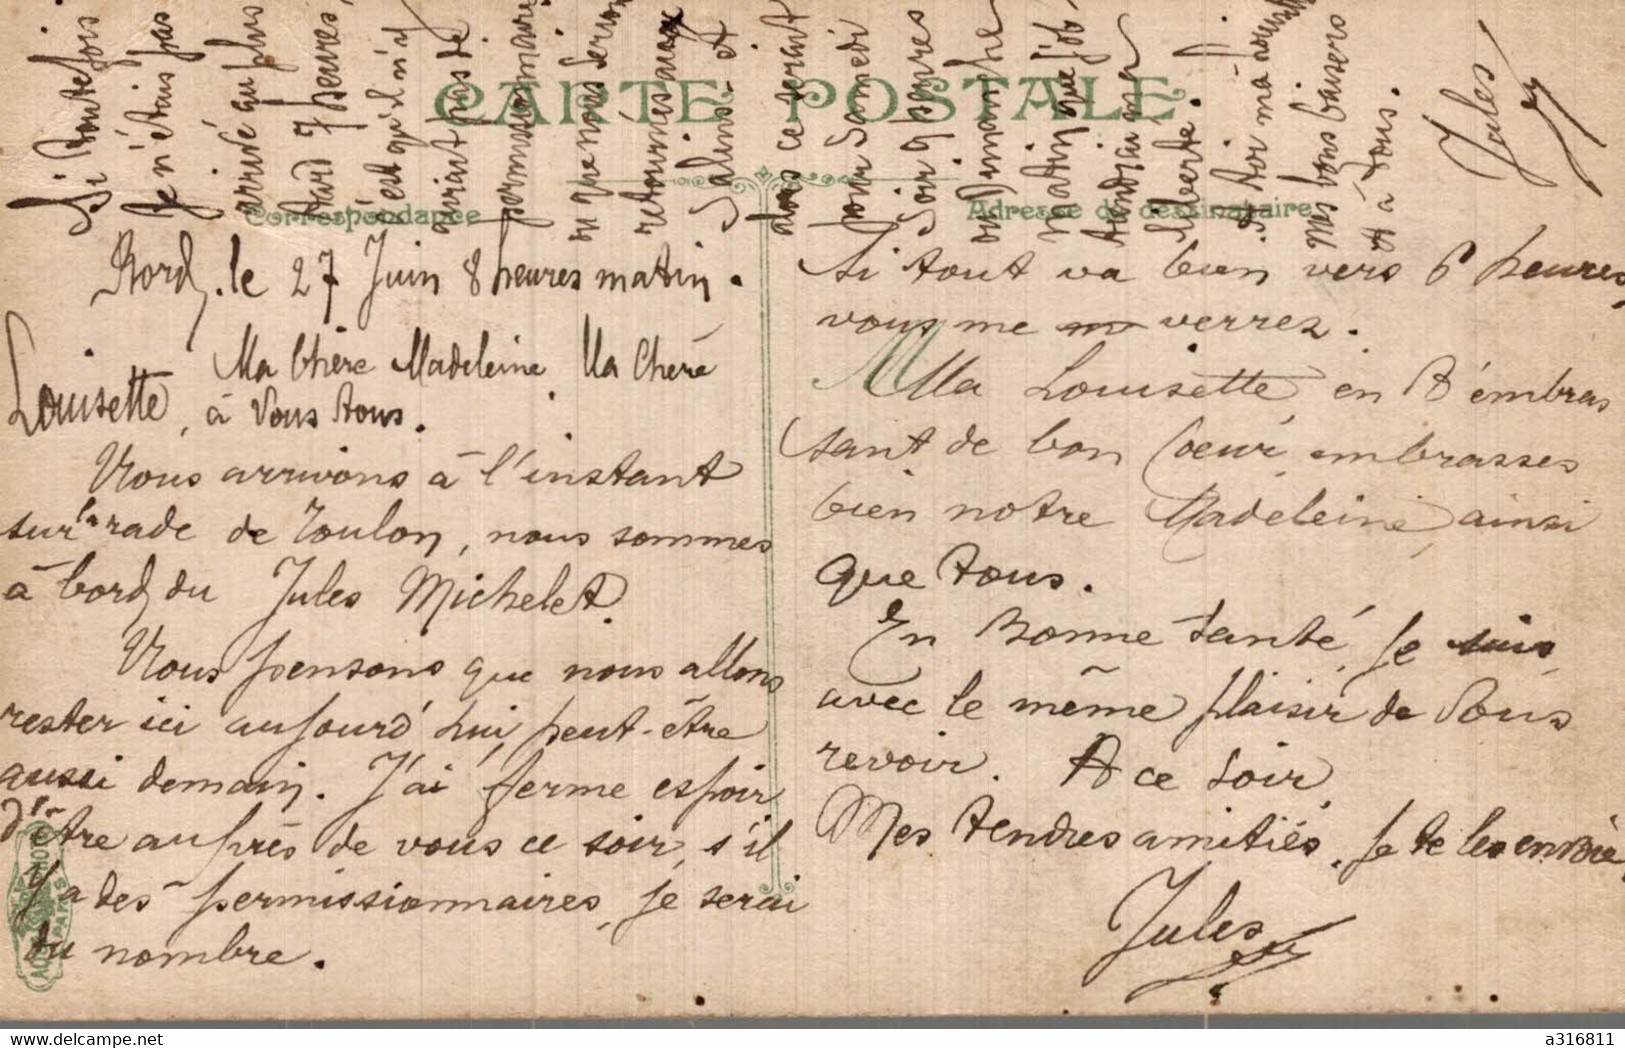 CARTE POSTALE
Correspondance
Adresse du destinataire
Bord, le 27 Juin 8 heures matin.
Ma Chère Madeleine Ma Chère
Louisette, à Vous tous.
Nous arrivons à l'instant
sur la rade de Toulon, nous sommes
à bord du Jules Michelet
Nous pensons que nous allons
rester ici aujourd'hui, peut-être
aussi demain. J'ai ferme espoir
d'être auprès de vous ce soir, s'il
y a des permissionnaires, je serai
du nombre.
Si tout va bien vers 6 heures,
vous me verrez.
Ma Louisette, en t'embras
sant de bon Coeur, embrasses
bien notre Madeleine, ainsi
que tous.
En Bonne Santé, je suis
avec le même plaisir de Vous
revoir. A ce soir
Mes tendres amitiés, je te les envoie
Jules
Si toutefois
je n'étais pas
arrivé au plus
tard 7 heures,
c'est qu'il n'y
aurait pas de
permissionnaires
ou que nous serions
retournés aux
Salins - et
alors ce serait
pour Samedi
soir 9 heures
ou Dimanche
matin que j'ob
tiendrai ma
liberté.
à toi ma
Mes bons baisers
et à tous.
Jules